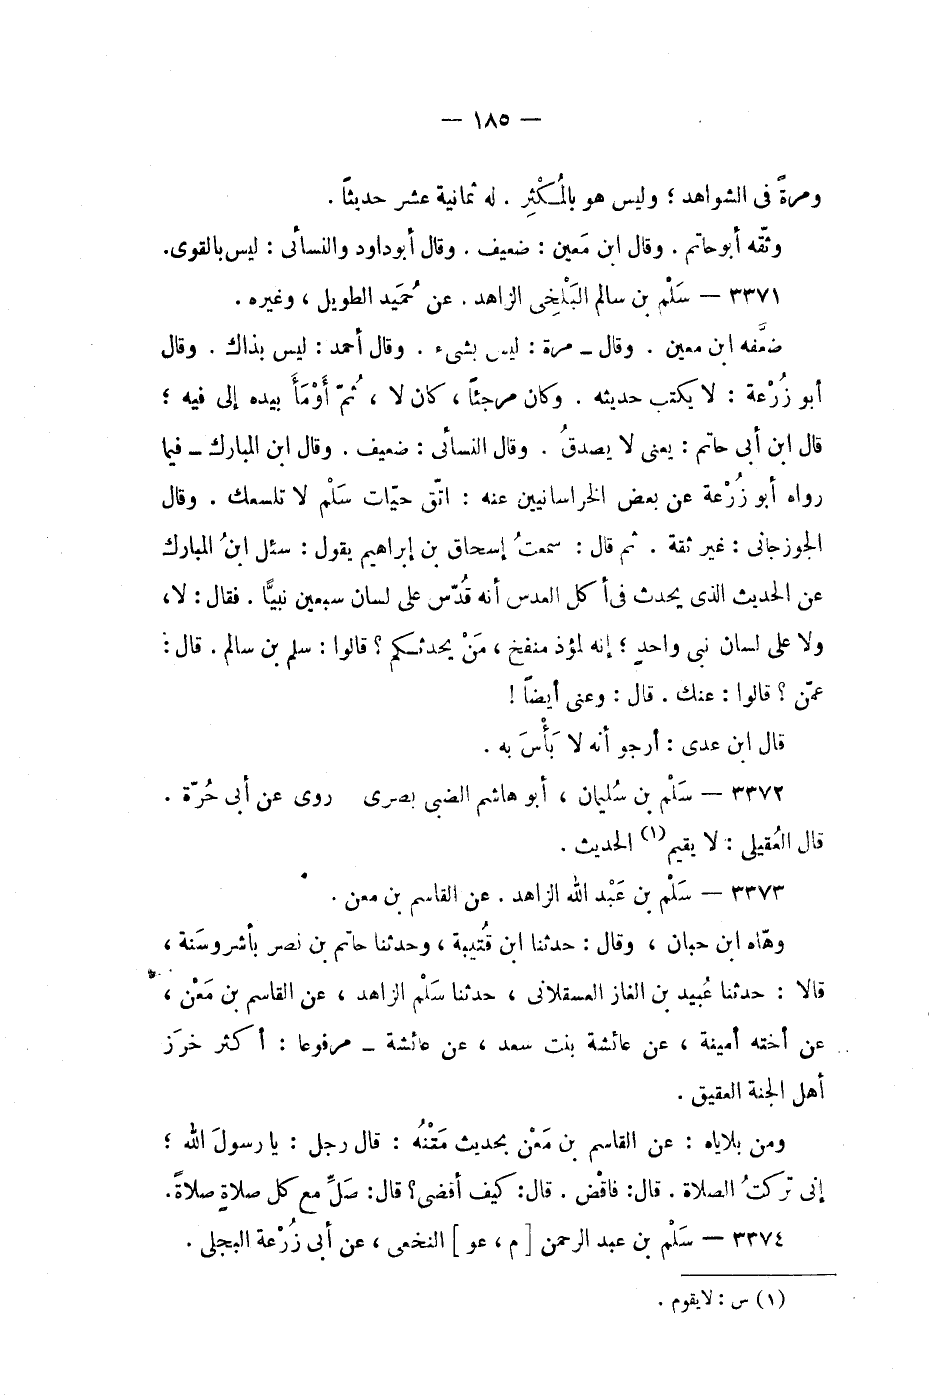 — ١٨٥ —
ومرةً فى الشواهد ؛ وليس هو بالمُكْثِر . له ثمانية عشر حديثاً .
وثّقه أبو حاتم . وقال ابن مَعين : ضعيف . وقال أبو داود والنسائى : ليس بالقوى .
٣٣٧١ — سَلْم بن سالم البَلْخِى الزاهد . عن حُميَد الطويل ، وغيره .
ضعَّفه ابن معين . وقال ــ مرة : ليس بشىء . وقال أحمد : ليس بذاك . وقال
أبو زُرْعة : لا يكتب حديثه . وكان مرجئاً ، كان لا ، ثُمّ أَوْمَأَ بيده إلى فيه ؛
قال ابن أبى حاتم : يعنى لا يصدقُ . وقال النسائى : ضعيف . وقال ابن المبارك ــ فيما
رواه أبو زُرْعة عن بعض الخراسانيين عنه : اتّق حيّات سَلْم لا تلسعك . وقال
الجوزجانى : غير ثقة . ثم قال : سمعتُ إسحاق بن إبراهيم يقول : سئل ابنُ المبارك
عن الحديث الذى يحدث فى أكل العدس أنه قُدّس على لسان سبعين نبيًّا . فقال : لا ،
ولا على لسان نبى واحدٍ ؛ إنه لمؤذ منفخ ، مَنْ يحدثكم ؟ قالوا : سلم بن سالم . قال :
عمّن ؟ قالوا : عنك . قال : وعنى أيضاً !
قال ابن عدى : أرجو أنه لا بَأْسَ به .
٣٣٧٢ — سَلْم بن سُليمان ، أبو هاشم الضبى بصرى روى عن أبى حُرّة .
قال العُقيلى : لا يقيم (١) الحديث .
٣٣٧٣ — سَلْم بن عَبْد الله الزاهد . عن القاسم بن معن .
وهّاه ابن حبان ، وقال : حدثنا ابن قُتيبة ، وحدثنا حاتم بن نصر بأشروسَنة ،
قالا : حدثنا عُبيد بن الغاز العسقلانى ، حدثنا سَلْم الزاهد ، عن القاسم بن مَعْن ،
عن أخته أمينة ، عن عائشة بنت سعد ، عن عائشة ــ مرفوعا : أكثر خرَز
أهل الجنة العقيق .
ومن بلاياه : عن القاسم بن مَعْن بحديث مَتْنُه : قال رجل : يا رسولَ الله ؛
إنى تركتُ الصلاة . قال : فاقْض . قال : كيف أقضى ؟ قال : صَلِّ مع كل صلاةٍ صلاةً .
٣٣٧٤ — سَلْم بن عبد الرحمن [ م ، عو ] النخعى ، عن أبى زُرْعة البجلى .
(١) س : لا يقوم .